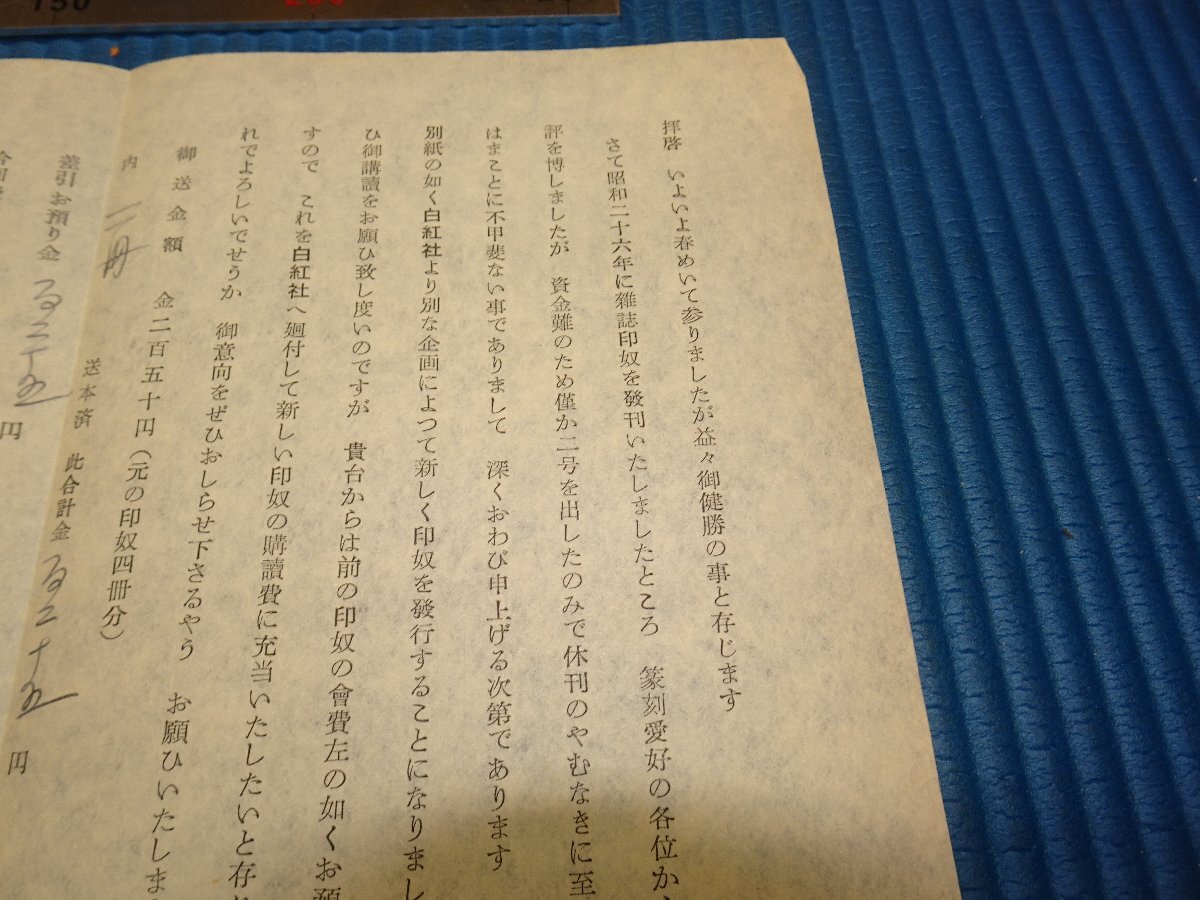 拝啓　いよいよ春めいて参りましたが益々御健勝の事と存じます
さて昭和二十六年に雑誌印奴を發刊いたしましたところ　篆刻愛好の各位か
評を博しましたが　資金難のため僅か二号を出したのみで休刊のやむなきに至
はまことに不甲斐ない事でありまして　深くおわび申上げる次第であります
別紙の如く白紅社より別な企画によつて新しく印奴を發行することになりまし
ひ御講讀をお願ひ致し度いのですが　貴台からは前の印奴の會費左の如くお預
すので　これを白紅社へ廻付して新しい印奴の購讀費に充当いたしたいと存
れでよろしいでせうか　御意向をぜひおしらせ下さるやう　お願ひいたしま
御送金額　金二百五十円（元の印奴四冊分）
内　二冊　送本済　此合計金　百二十五円
差引お預り金　百二十五円
150